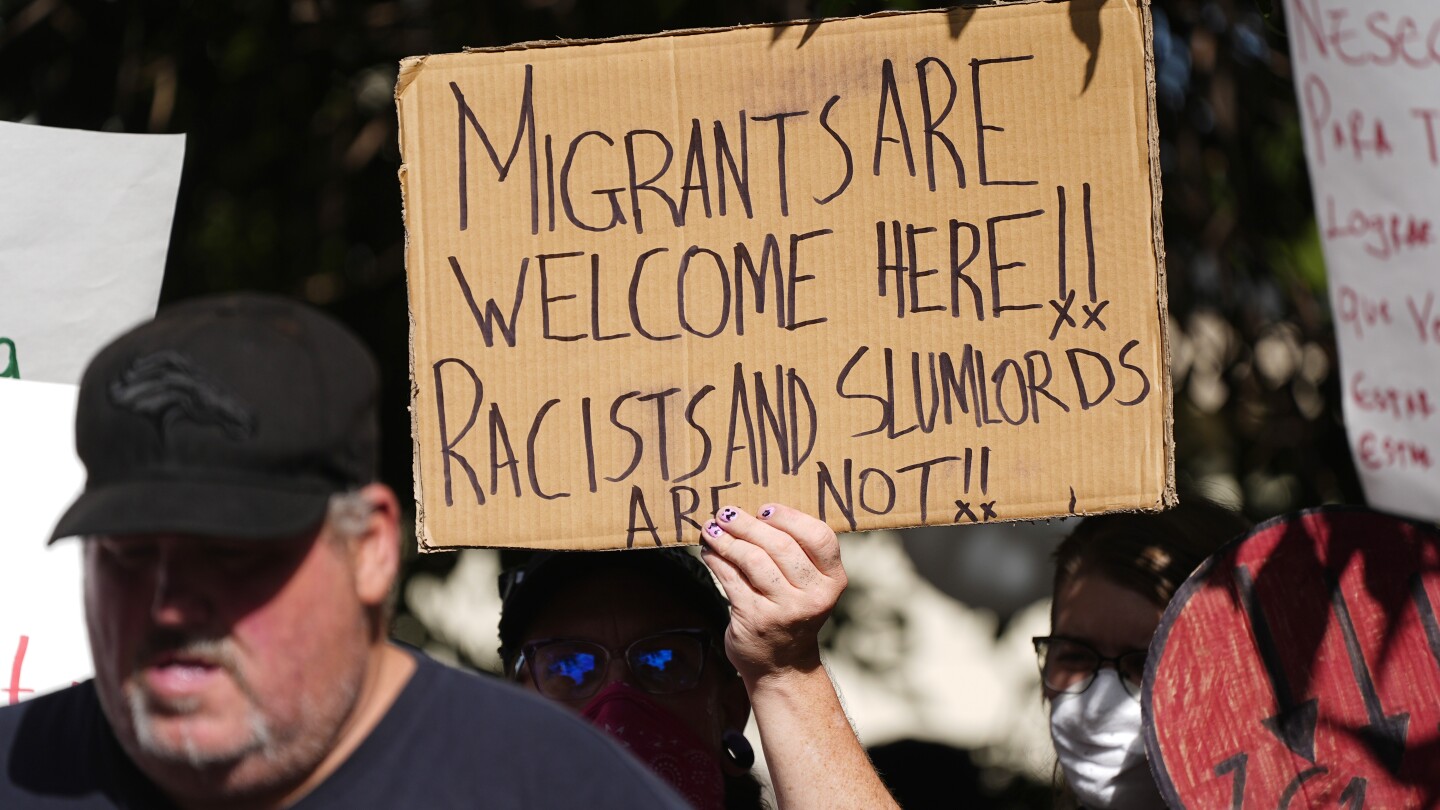 MIGRANTS ARE
WELCOME HERE!!
RACISTS AND SLUMLORDS
ARE NOT!!
NESC
PARA T
Lograr
que Ve